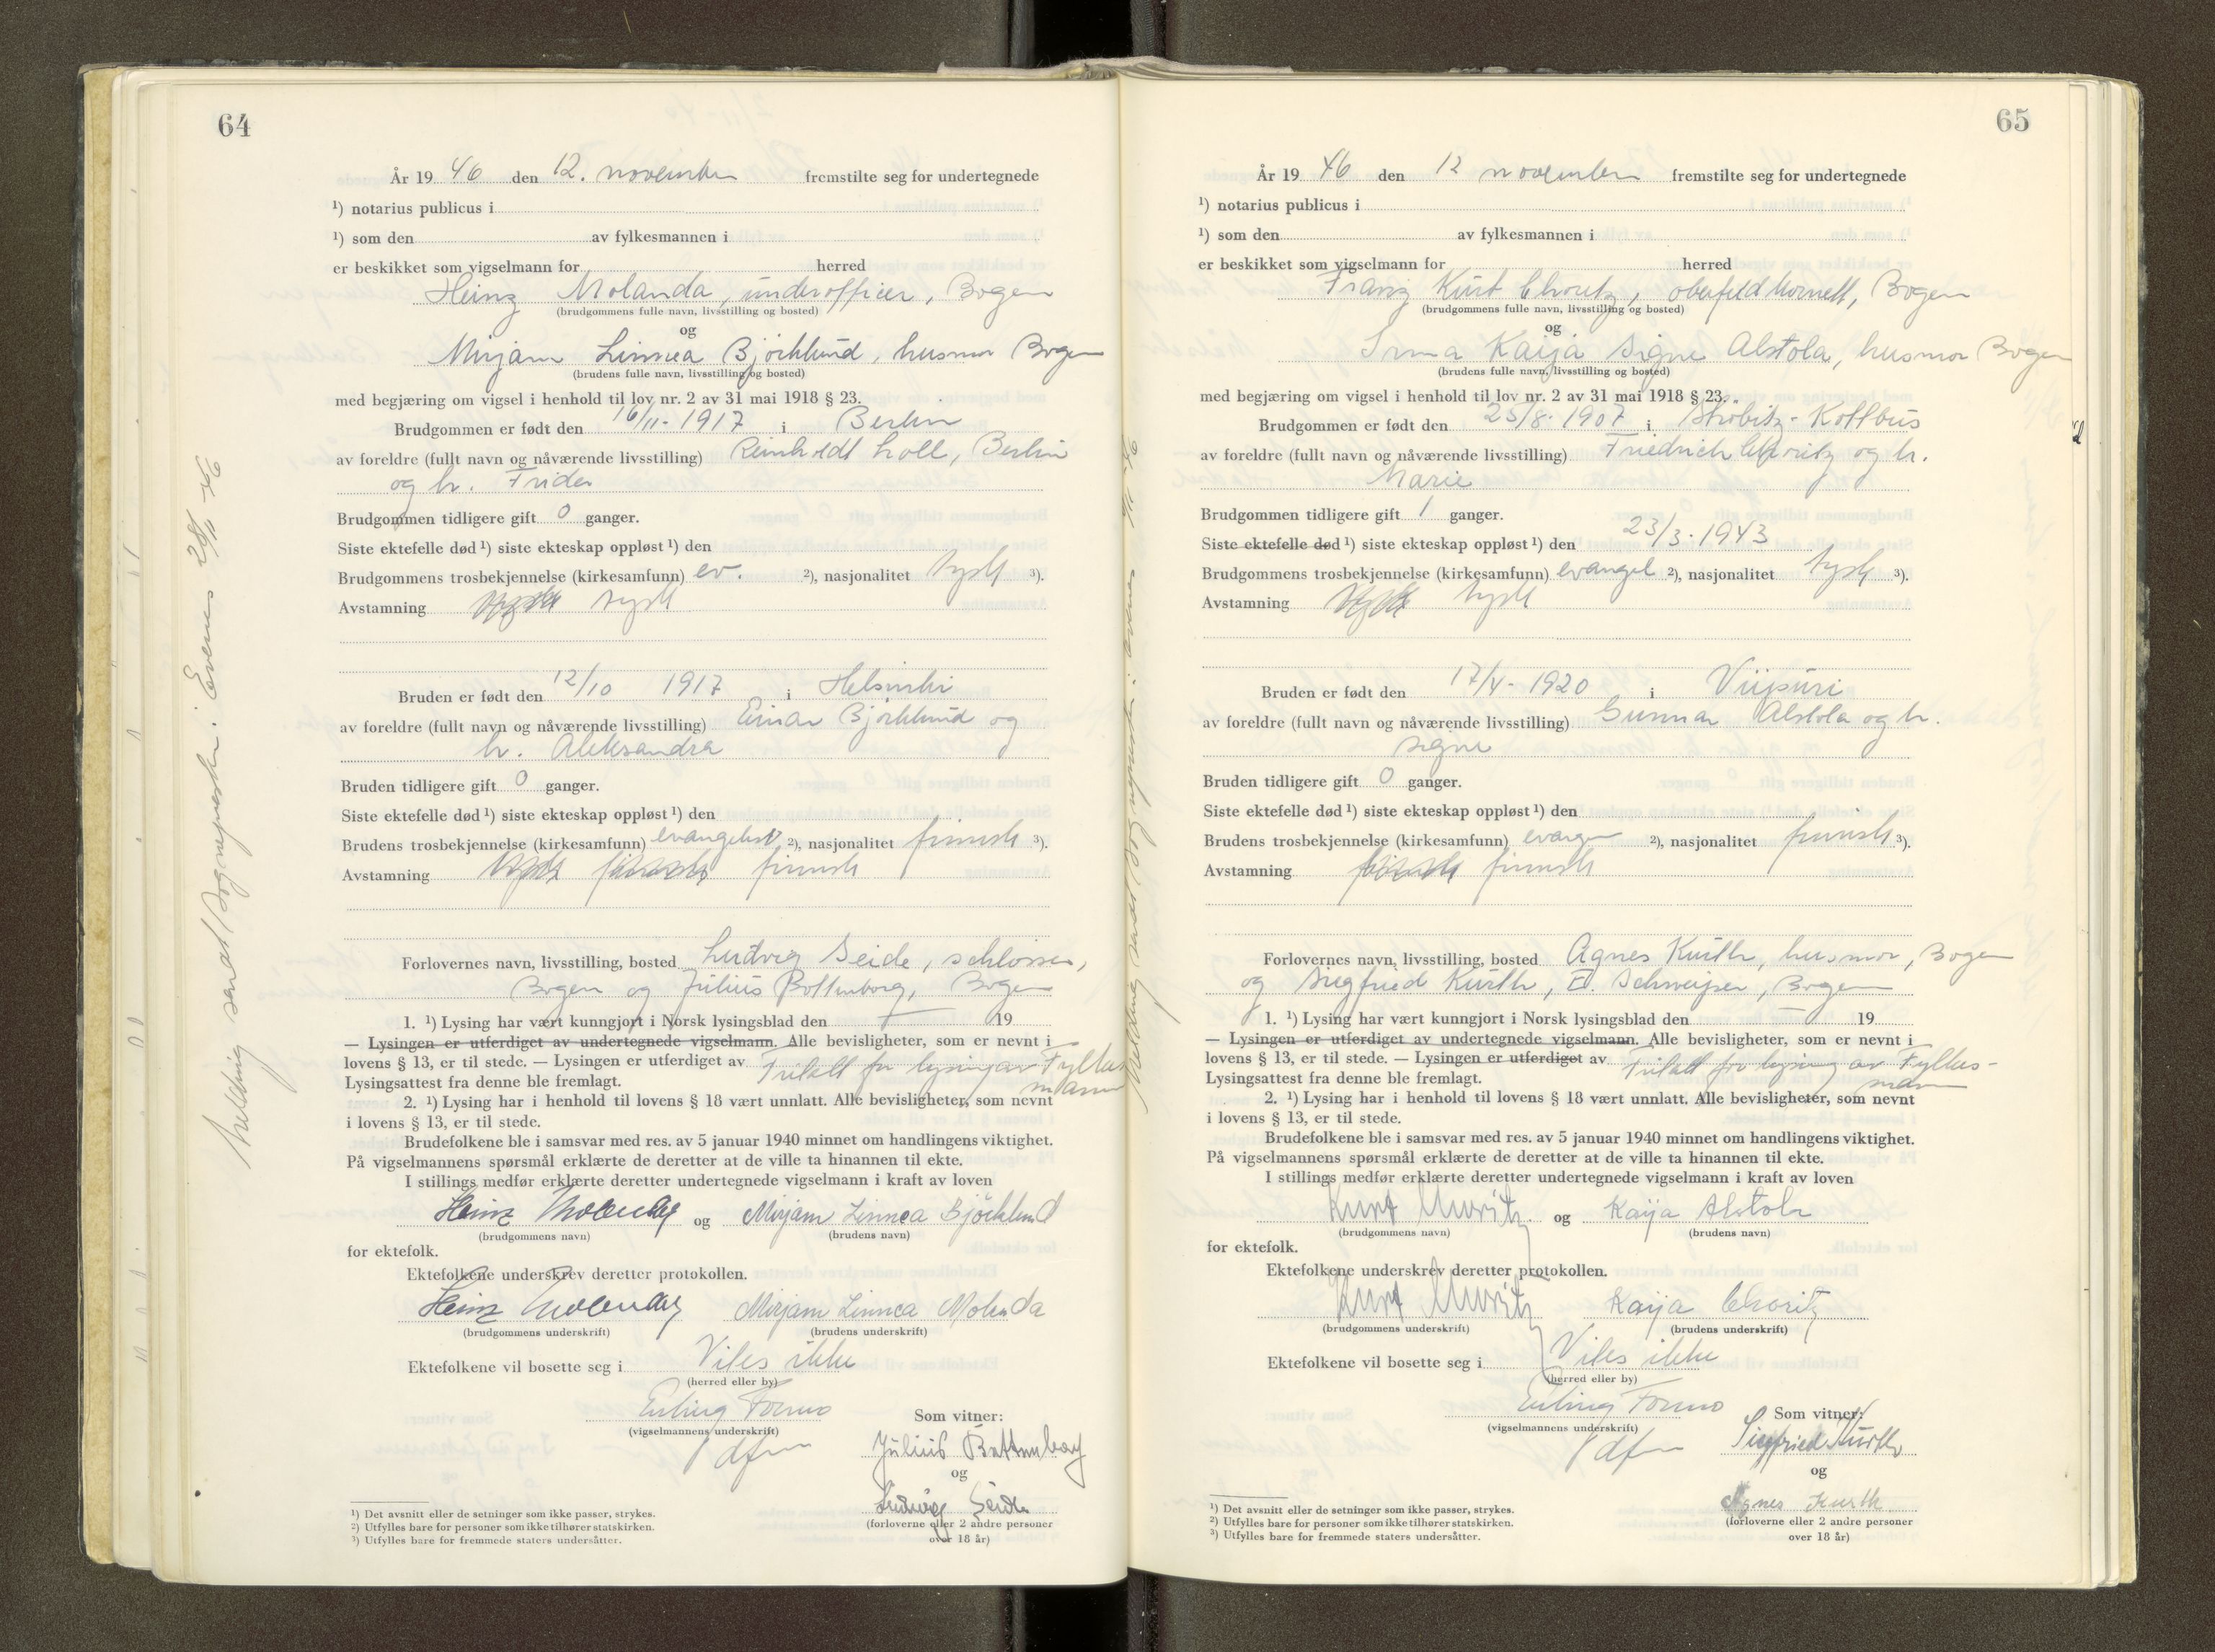 64
År 19 46 den 12. november fremstilte seg for undertegnede
¹) notarius publicus i
¹) som den av fylkesmannen i
er beskikket som vigselmann for herred
Heinz Molanda, underofficer, Bogen
(brudgommens fulle navn, livsstilling og bosted)
og
Mirjam Linnea Björklund, husmor Bogen
(brudens fulle navn, livsstilling og bosted)
med begjæring om vigsel i henhold til lov nr. 2 av 31 mai 1918 § 23.
Brudgommen er født den 16/11-1917 i Berlin
av foreldre (fullt navn og nåværende livsstilling) Reinholdt Loll, Berlin
og h. Frida
Brudgommen tidligere gift 0 ganger.
Siste ektefelle død ¹) siste ekteskap oppløst ¹) den
Brudgommens trosbekjennelse (kirkesamfunn) ev. ²), nasjonalitet tysk ³).
Avstamning tysk
Bruden er født den 12/10 1917 i Helsinki
av foreldre (fullt navn og nåværende livsstilling) Einar Björklund og
h. Aleksandra
Bruden tidligere gift 0 ganger.
Siste ektefelle død ¹) siste ekteskap oppløst ¹) den
Brudens trosbekjennelse (kirkesamfunn) evangelisk ²), nasjonalitet finnsk ³).
Avstamning finnsk
Forlovernes navn, livsstilling, bosted Ludvig Seide, schlosser,
Bogen og Julius Bottenborg, Bogen
1. ¹) Lysing har vært kunngjort i Norsk lysingsblad den — 19
— Lysingen er utferdiget av undertegnede vigselmann. Alle bevisligheter, som er nevnt i
lovens § 13, er til stede. — Lysingen er utferdiget av Fritatt for lysing av Fylkes-
mann
Lysingsattest fra denne ble fremlagt.
2. ¹) Lysing har i henhold til lovens § 18 vært unnlatt. Alle bevisligheter, som nevnt
i lovens § 13, er til stede.
Brudefolkene ble i samsvar med res. av 5 januar 1940 minnet om handlingens viktighet.
På vigselmannens spørsmål erklærte de deretter at de ville ta hinannen til ekte.
I stillings medfør erklærte deretter undertegnede vigselmann i kraft av loven
Heinz og Mirjam Linnea Björklund
(brudgommens navn) (brudens navn)
for ektefolk.
Ektefolkene underskrev deretter protokollen.
Heinz Mirjam Linnea Molenda
(brudgommens underskrift) (brudens underskrift)
Ektefolkene vil bosette seg i Vites ikke
(herred eller by)
Erling Formo
(vigselmannens underskrift)
dfm
Som vitner:
Julius Bottenberg
og
Ludwig Seide
(forloverne eller 2 andre personer
over 18 år)
¹) Det avsnitt eller de setninger som ikke passer, strykes.
²) Utfylles bare for personer som ikke tilhører statskirken.
³) Utfylles bare for fremmede staters undersåtter.
Melding sendt Sognepresten i Evenes 28/11-46
65
År 19 46 den 12 november fremstilte seg for undertegnede
¹) notarius publicus i
¹) som den av fylkesmannen i
er beskikket som vigselmann for herred
Franz Kurt Choritz, Bogen
(brudgommens fulle navn, livsstilling og bosted)
og
Irma Kaija Signe Alstola, husmor Bogen
(brudens fulle navn, livsstilling og bosted)
med begjæring om vigsel i henhold til lov nr. 2 av 31 mai 1918 § 23.
Brudgommen er født den 25/8-1907 i Ströbitz-Kottbus
av foreldre (fullt navn og nåværende livsstilling) Friedrich Choritz og h.
Marie
Brudgommen tidligere gift 1 ganger.
Siste ektefelle død ¹) siste ekteskap oppløst ¹) den 23/3-1943
Brudgommens trosbekjennelse (kirkesamfunn) evangel ²), nasjonalitet tysk ³).
Avstamning tysk
Bruden er født den 17/4-1920 i Viipuri
av foreldre (fullt navn og nåværende livsstilling) Gunnar Alstola og h.
Signe
Bruden tidligere gift 0 ganger.
Siste ektefelle død ¹) siste ekteskap oppløst ¹) den
Brudens trosbekjennelse (kirkesamfunn) evangen ²), nasjonalitet finnsk ³).
Avstamning finnsk
Forlovernes navn, livsstilling, bosted Agnes Kurth, husmor, Bogen
og Siegfried Kurth, Schweiser, Bogen
1. ¹) Lysing har vært kunngjort i Norsk lysingsblad den — 19
— Lysingen er utferdiget av undertegnede vigselmann. Alle bevisligheter, som er nevnt i
lovens § 13, er til stede. — Lysingen er utferdiget av Fritatt for lysing av Fylkes-
mann
Lysingsattest fra denne ble fremlagt.
2. ¹) Lysing har i henhold til lovens § 18 vært unnlatt. Alle bevisligheter, som nevnt
i lovens § 13, er til stede.
Brudefolkene ble i samsvar med res. av 5 januar 1940 minnet om handlingens viktighet.
På vigselmannens spørsmål erklærte de deretter at de ville ta hinannen til ekte.
I stillings medfør erklærte deretter undertegnede vigselmann i kraft av loven
Kurt Choritz og Kaija Alstola
(brudgommens navn) (brudens navn)
for ektefolk.
Ektefolkene underskrev deretter protokollen.
Kurt Choritz Kaija Choritz
(brudgommens underskrift) (brudens underskrift)
Ektefolkene vil bosette seg i Vites ikke
(herred eller by)
Erling Formo
(vigselmannens underskrift)
dfm
Som vitner:
Siegfried Kurth
og
Agnes Kurth
(forloverne eller 2 andre personer
over 18 år)
¹) Det avsnitt eller de setninger som ikke passer, strykes.
²) Utfylles bare for personer som ikke tilhører statskirken.
³) Utfylles bare for fremmede staters undersåtter.
Melding sendt Sognepresten i Evenes